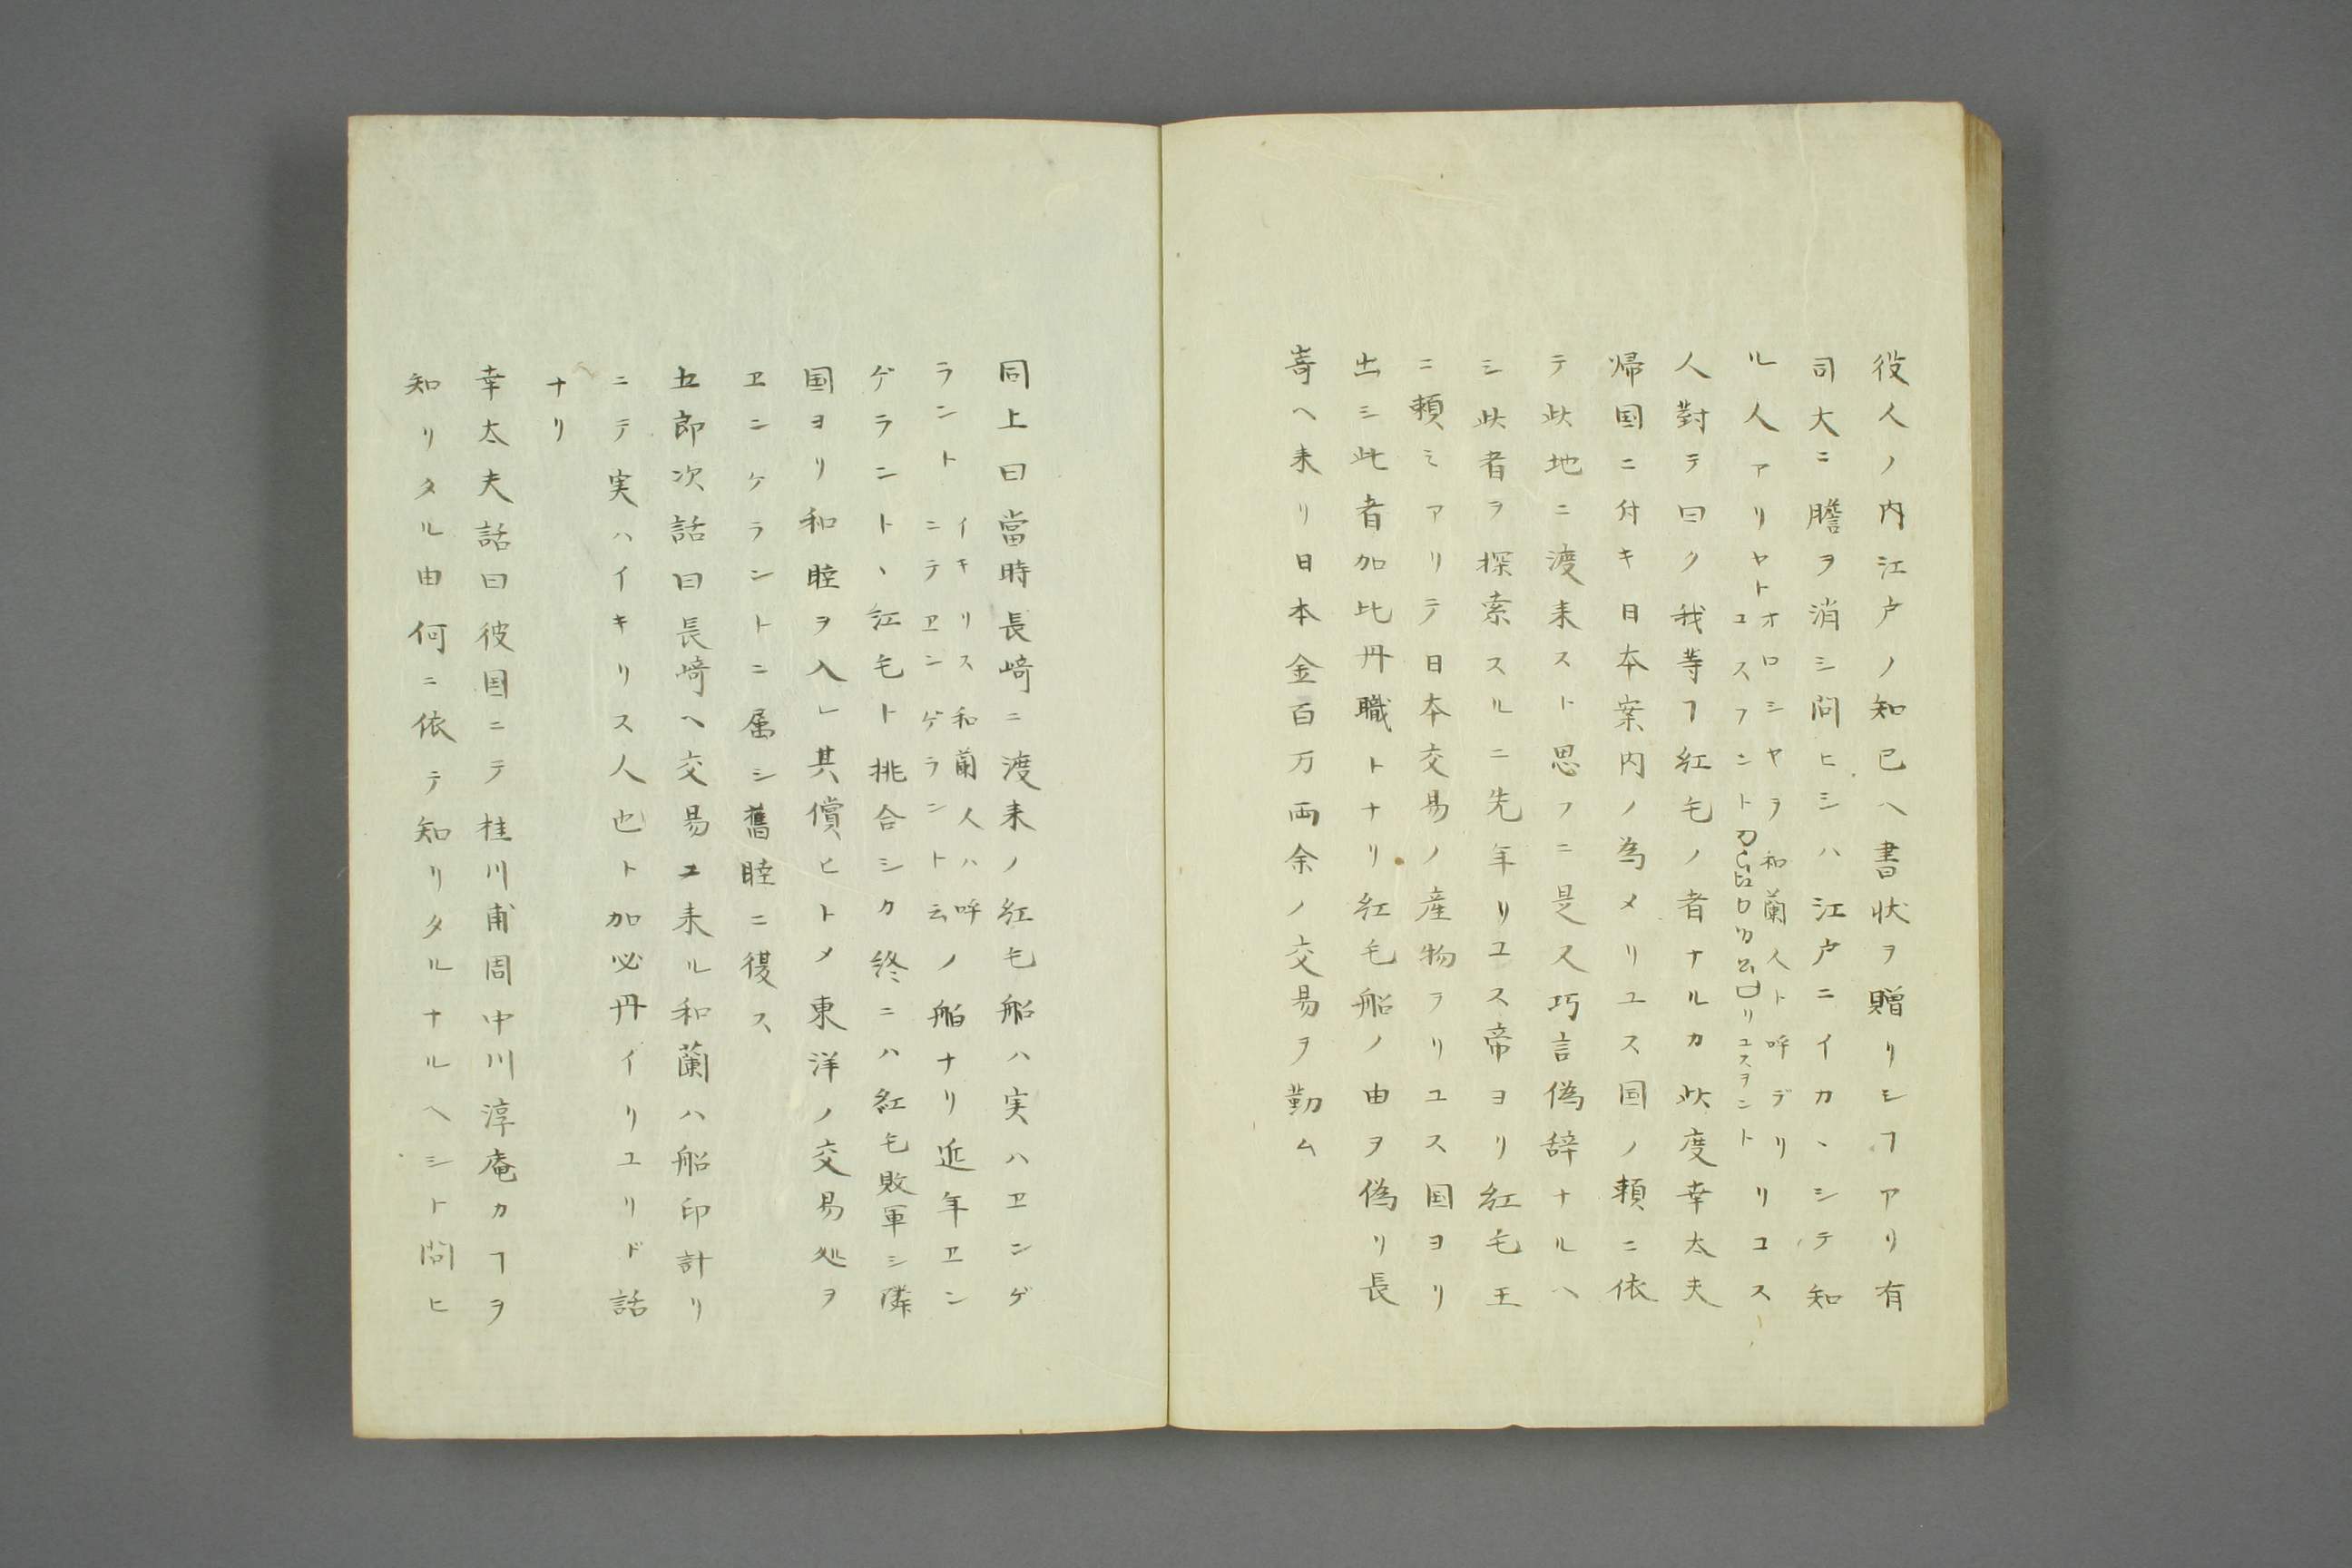 役人ノ内江戸ノ知已ヘ書状ヲ贈リシヿアリ有
司大ニ膽ヲ消シ問ヒシハ江戸ニイカヽシテ知
ル人アリヤト
オロシヤヲ和蘭人ト呼デリ
ユスフント
リユスヲント
リコス
人對テ曰ク我等ヿ紅毛ノ者ナルカ此度幸太夫
帰国ニ付キ日本案内ノ為メリユス国ノ頼ニ依
テ此地ニ渡来スト思フニ是又巧言偽辞ナルヘ
シ此者ヲ探索スルニ先年リユス帝ヨリ紅毛王
ニ頼ミアリテ日本交易ノ産物ヲリユス国ヨリ
出シ此者加比丹職トナリ紅毛船ノ由ヲ偽リ長
嵜ヘ来リ日本金百万両余ノ交易ヲ勤ム
同上曰當時長﨑ニ渡来ノ紅毛船ハ実ハヱンゲ
ラント
イキリス和蘭人ハ呼
ニテヱンゲラント云
ノ舶ナリ近年ヱン
ゲラントヽ紅毛ト挑合シカ終ニハ紅毛敗軍シ隣
国ヨリ和睦ヲ入レ其償ヒトメ東洋ノ交易処ヲ
ヱンケラントニ属シ舊睦ニ復ス
五郎次話曰長﨑ヘ交易ユ来ル和蘭ハ船印計リ
ニテ実ハイキリス人也ト加必丹イリユリド話
ナリ
幸太夫話曰彼国ニテ桂川甫周中川淳庵カヿヲ
知リタル由何ニ依テ知リタルナルヘシト問ヒ